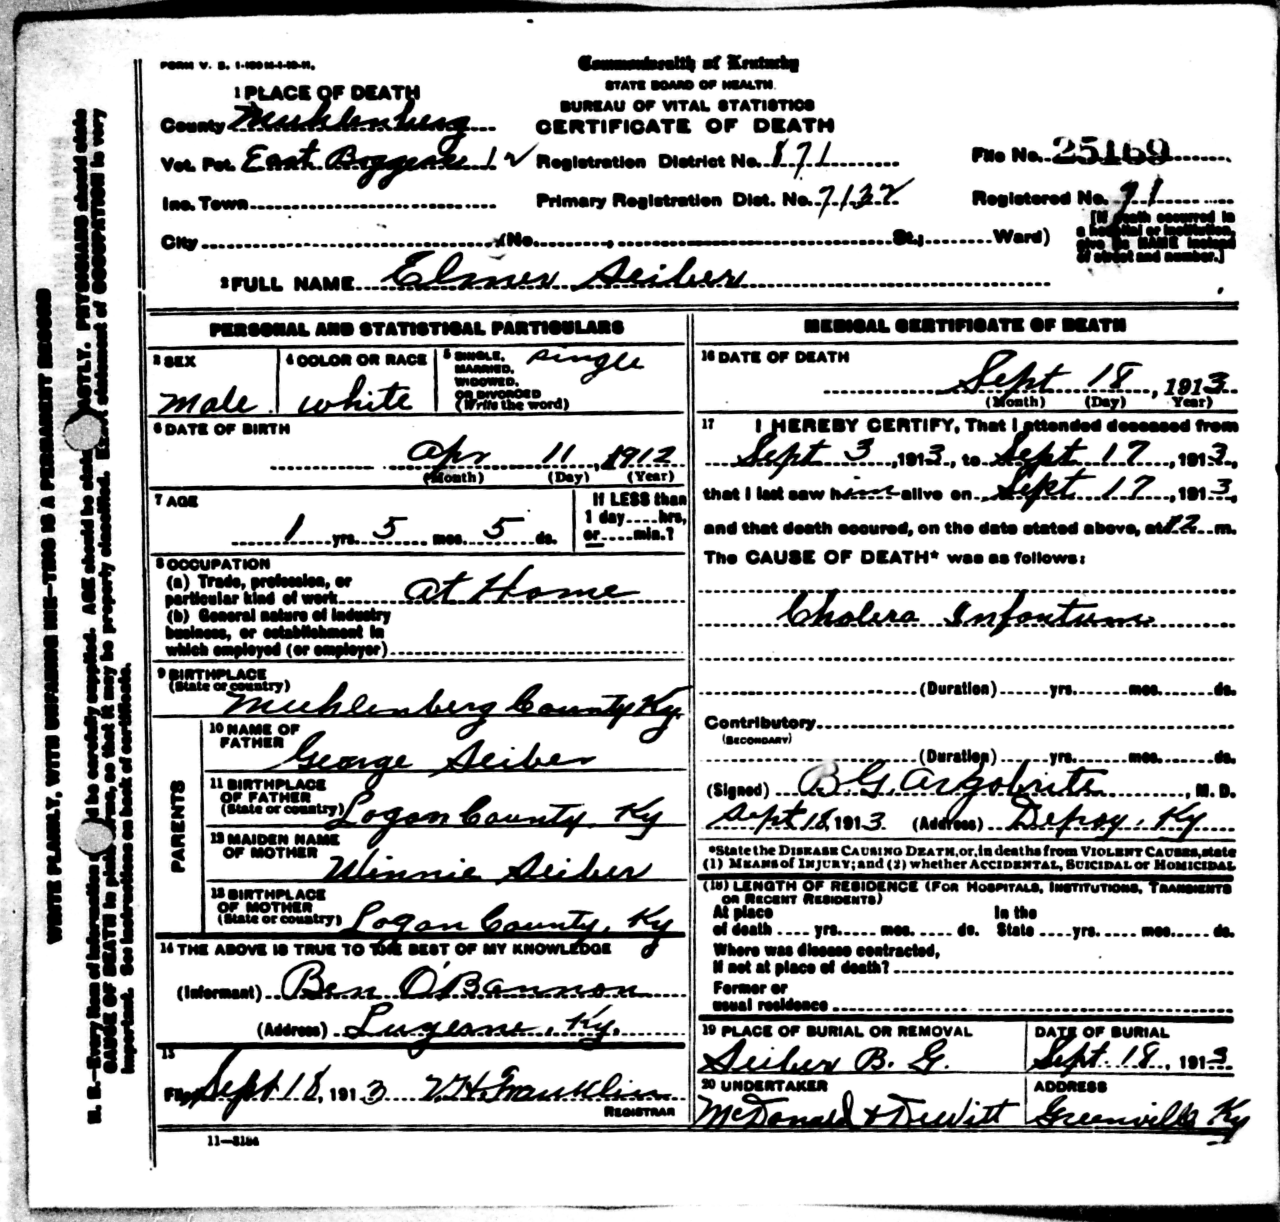 FORM V. S. 1-150M-1-10-11.
Commonwealth of Kentucky
STATE BOARD OF HEALTH.
BUREAU OF VITAL STATISTICS
CERTIFICATE OF DEATH
1 PLACE OF DEATH
County Muhlenberg
Vot. Pct. East 12 Registration District No. 871 File No. 25169
Inc. Town Primary Registration Dist. No. 7132 Registered No. 91
City (No. , St.; Ward) [If death occurred in a hospital or institution, give its NAME instead of street and number.]
2 FULL NAME Elmer Seiber
PERSONAL AND STATISTICAL PARTICULARS
3 SEX Male
4 COLOR OR RACE white
5 SINGLE, MARRIED, WIDOWED, OR DIVORCED (Write the word) single
6 DATE OF BIRTH
Apr 11, 1912
(Month) (Day) (Year)
7 AGE
1 yrs. 5 mos. 5 ds.
If LESS than 1 day....hrs, or....min.?
8 OCCUPATION
(a) Trade, profession, or
particular kind of work At Home
(b) General nature of industry
business, or establishment in
which employed (or employer)
9 BIRTHPLACE
(State or country)
Muhlenberg County Ky.
PARENTS
10 NAME OF FATHER George Seiber
11 BIRTHPLACE OF FATHER (State or country) Logan County, Ky
12 MAIDEN NAME OF MOTHER Winnie Seiber
13 BIRTHPLACE OF MOTHER (State or country) Logan County, Ky
14 THE ABOVE IS TRUE TO THE BEST OF MY KNOWLEDGE
(Informant) Ben O'Bannon
(Address) Luzerne, Ky.
15
Filed Sept 18, 1913 V.H. Franklin
REGISTRAR
11—3184
MEDICAL CERTIFICATE OF DEATH
16 DATE OF DEATH
Sept 18, 1913
(Month) (Day) (Year)
17 I HEREBY CERTIFY, That I attended deceased from
Sept 3, 1913, to Sept 17, 1913,
that I last saw him alive on Sept 17, 1913,
and that death occured, on the date stated above, at 12 m.
The CAUSE OF DEATH* was as follows:
Cholera Infantum
(Duration) yrs. mos. ds.
Contributory
(SECONDARY)
(Duration) yrs. mos. ds.
(Signed) B.G. Argabrite, M. D.
Sept 18, 1913 (Address) Depoy, Ky
*State the DISEASE CAUSING DEATH, or, in deaths from VIOLENT CAUSES, state
(1) MEANS OF INJURY; and (2) whether ACCIDENTAL, SUICIDAL or HOMICIDAL
(18) LENGTH OF RESIDENCE (FOR HOSPITALS, INSTITUTIONS, TRANSIENTS
OR RECENT RESIDENTS)
At place In the
of death .... yrs. mos. ds. State .... yrs. mos. ds.
Where was disease contracted,
if not at place of death?
Former or
usual residence
19 PLACE OF BURIAL OR REMOVAL
Seiber B. G.
DATE OF BURIAL
Sept. 18, 1913
20 UNDERTAKER
McDonald & DeWitt
ADDRESS
Greenville Ky
WRITE PLAINLY, WITH UNFADING INK—THIS IS A PERMANENT RECORD
N. B.—Every item of information be carefully supplied. AGE should be stated EXACTLY. PHYSICIANS should state
CAUSE OF DEATH in plain terms, so that it may be properly classified. Exact statement of OCCUPATION is very
important. See instructions on back of certificate.